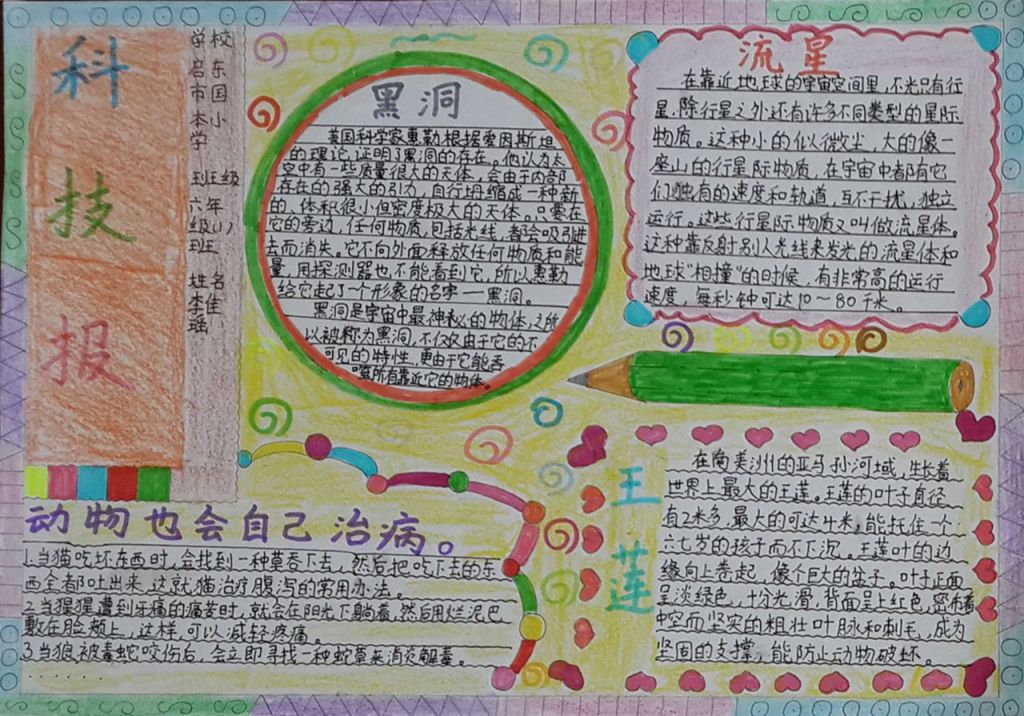 科
技
报
学校
启东
市国
本小
学
班级
六年
级(1)
班
姓名
李佳
瑶
黑洞
美国科学家惠勒根据爱因斯坦
的理论,证明了黑洞的存在。他认为太
空中有一些质量很大的天体,会由于内部
存在的强大的引力,自行坍缩成一种新
的、体积很小但密度极大的天体。只要在
它的旁边,任何物质,包括光线,都会吸引进
去而消失。它不向外面释放任何物质和能
量,用探测器也不能看到它,所以惠勒
给它起了个形象的名字——黑洞。
黑洞是宇宙中最神秘的物体,之所
以被称为黑洞,不仅仅由于它的不
可见的特性,更由于它能吞
噬所有靠近它的物体。
流星
在靠近地球的宇宙空间里,不光只有行
星,除行星之外还有许多不同类型的星际
物质。这种小的似微尘,大的像一
座山的行星际物质,在宇宙中都有它
们独有的速度和轨道,互不干扰,独立
运行。这些行星际物质又叫做流星体。
这种靠反射别人光线来发光的流星体和
地球“相撞”的时候,有非常高的运行
速度,每秒钟可达10~80千米。
动物也会自己治病。
1.当猫吃坏东西时,会找到一种草吞下去,然后把吃下去的东
西全都吐出来,这就猫治疗腹泻的常用办法。
2.当猩猩遭到牙痛的痛苦时,就会在阳光下躺着,然后用烂泥巴
敷在脸颊上,这样,可以减轻疼痛。
3.当狼被毒蛇咬伤后,会立即寻找一种蛇草来消炎解毒。
........
王
莲
在南美洲的亚马孙河域,生长着
世界上最大的王莲。王莲的叶子直径
有2米多,最大的可达4米,能托住一个
六七岁的孩子而不下沉。王莲叶的边
缘向上卷起,像个巨大的盆子。叶子正面
呈淡绿色,十分光滑,背面呈上红色,密布着
中空而坚实的粗壮叶脉和刺毛,成为
坚固的支撑,能防止动物破坏。